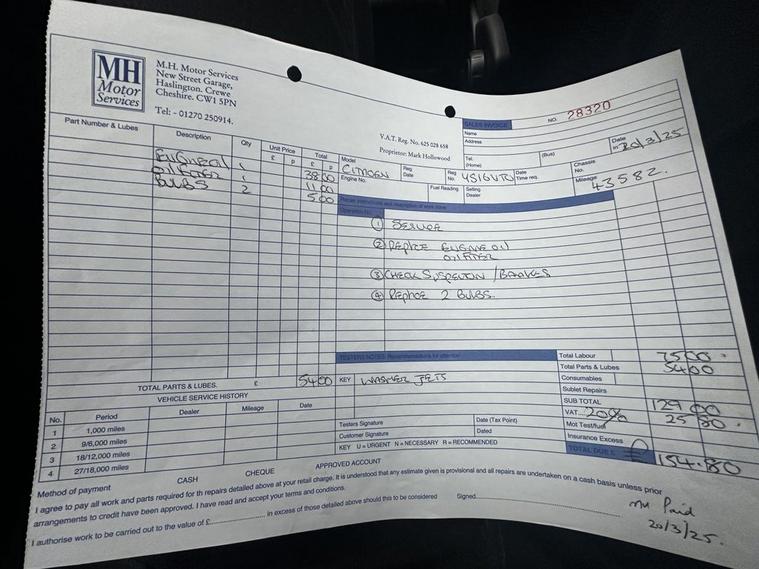 MH
Motor
Services
M.H. Motor Services
New Street Garage,
Haslington. Crewe
Cheshire. CW1 5PN
Tel: - 01270 250914.
V.A.T. Reg. No. 625 028 658
Proprietor: Mark Hollowood
SALES INVOICE NO. 28320
Name
Address
Tel. (Home) (Bus)
Date in 20/3/25
Part Number & Lubes Description Qty Unit Price £ p Total £ p
Model CITROEN Reg Date Reg No. Date Time req. Chassis No.
Engine No. Fuel Reading Selling Dealer Mileage 43582.
ENGINEOIL 1 38 00
OILFILTER 1 11 00
BULBS 2 5 00
Repair instructions and description of work done
Operation No.
① SERVICE
② REPLACE ENGINE OIL
OILFILTER
③ CHECK SUSPENSION / BRAKES
④ REPLACE 2 BULBS.
TESTERS NOTES: Recommendations for attention
KEY WASHER JETS
Total Labour 75 00
Total Parts & Lubes 54 00
Consumables
Sublet Repairs
SUB TOTAL 129 00
VAT 20% 25 80
Mot Test/fuel
Insurance Excess
TOTAL DUE £ 154.80
TOTAL PARTS & LUBES. £ 54 00
VEHICLE SERVICE HISTORY
No. Period Dealer Mileage Date
1 1,000 miles
2 9/6,000 miles
3 18/12,000 miles
4 27/18,000 miles
Testers Signature Date (Tax Point)
Customer Signature Dated
KEY U = URGENT N = NECESSARY R = RECOMMENDED
Method of payment CASH CHEQUE APPROVED ACCOUNT
I agree to pay all work and parts required for th repairs detailed above at your retail charge. It is understood that any estimate given is provisional and all repairs are undertaken on a cash basis unless prior
arrangements to credit have been approved. I have read and accept your terms and conditions.
I authorise work to be carried out to the value of £ in excess of those detailed above should this to be considered Signed
Paid
20/3/25.